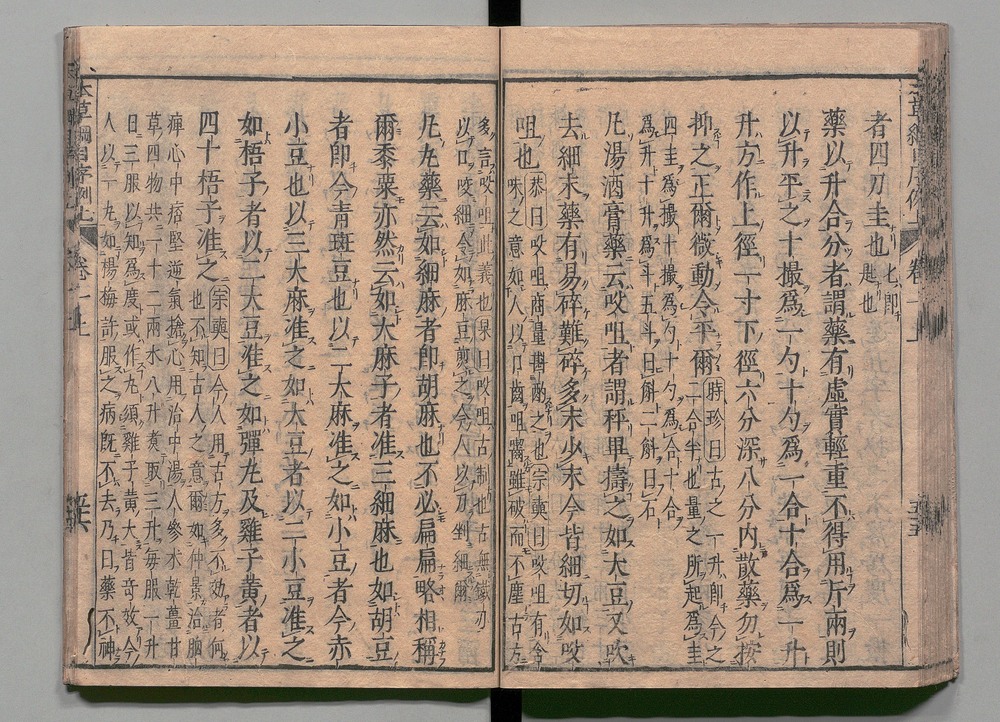 者四刀圭也匕即匙也
藥以升合分者謂藥有虛實輕重不得用斤兩則
以升平之十撮爲一勺十勺爲一合十合爲一升
升方作上徑一寸下徑六分深八分内散藥勿按
抑之正爾微動令平爾時珍曰古之一升即今之二合半也量之所起爲圭
四圭爲撮十撮爲勺十勺爲合十合爲升十升爲斗五斗曰斛二斛曰石
凡湯酒膏藥云㕮咀者謂秤畢擣之如大豆又吹
去細末藥有易碎難碎多末少末今皆細切如㕮
咀也恭曰㕮咀商量斟酌之也宗奭曰㕮咀有含味之意如人以口齒咀齧雖破而不塵古方
多言㕮咀此義也杲曰㕮咀古制也古無鐵刃以口㕮細令如麻豆煎之今人以刀剉細爾
凡丸藥云如細麻者即胡麻也不必扁扁略相稱
爾黍粟亦然云如大麻子者准三細麻也如胡豆
者即今青斑豆也以二大麻准之如小豆者今赤
小豆也以三大麻准之如大豆者以二小豆准之
如梧子者以二大豆准之如彈丸及雞子黃者以
四十梧子准之宗奭曰今人用古方多不效者何也不知古人之意爾如仲景治胸
痺心中痞堅逆氣搶心用治中湯人參朮乾薑甘草四物共一十二兩水八升煮取三升每服一升
日三服以知爲度或作丸須雞子黃大皆奇效今人以一丸如楊梅許服之病既不去乃曰藥不神
本草綱目序例上
卷一上